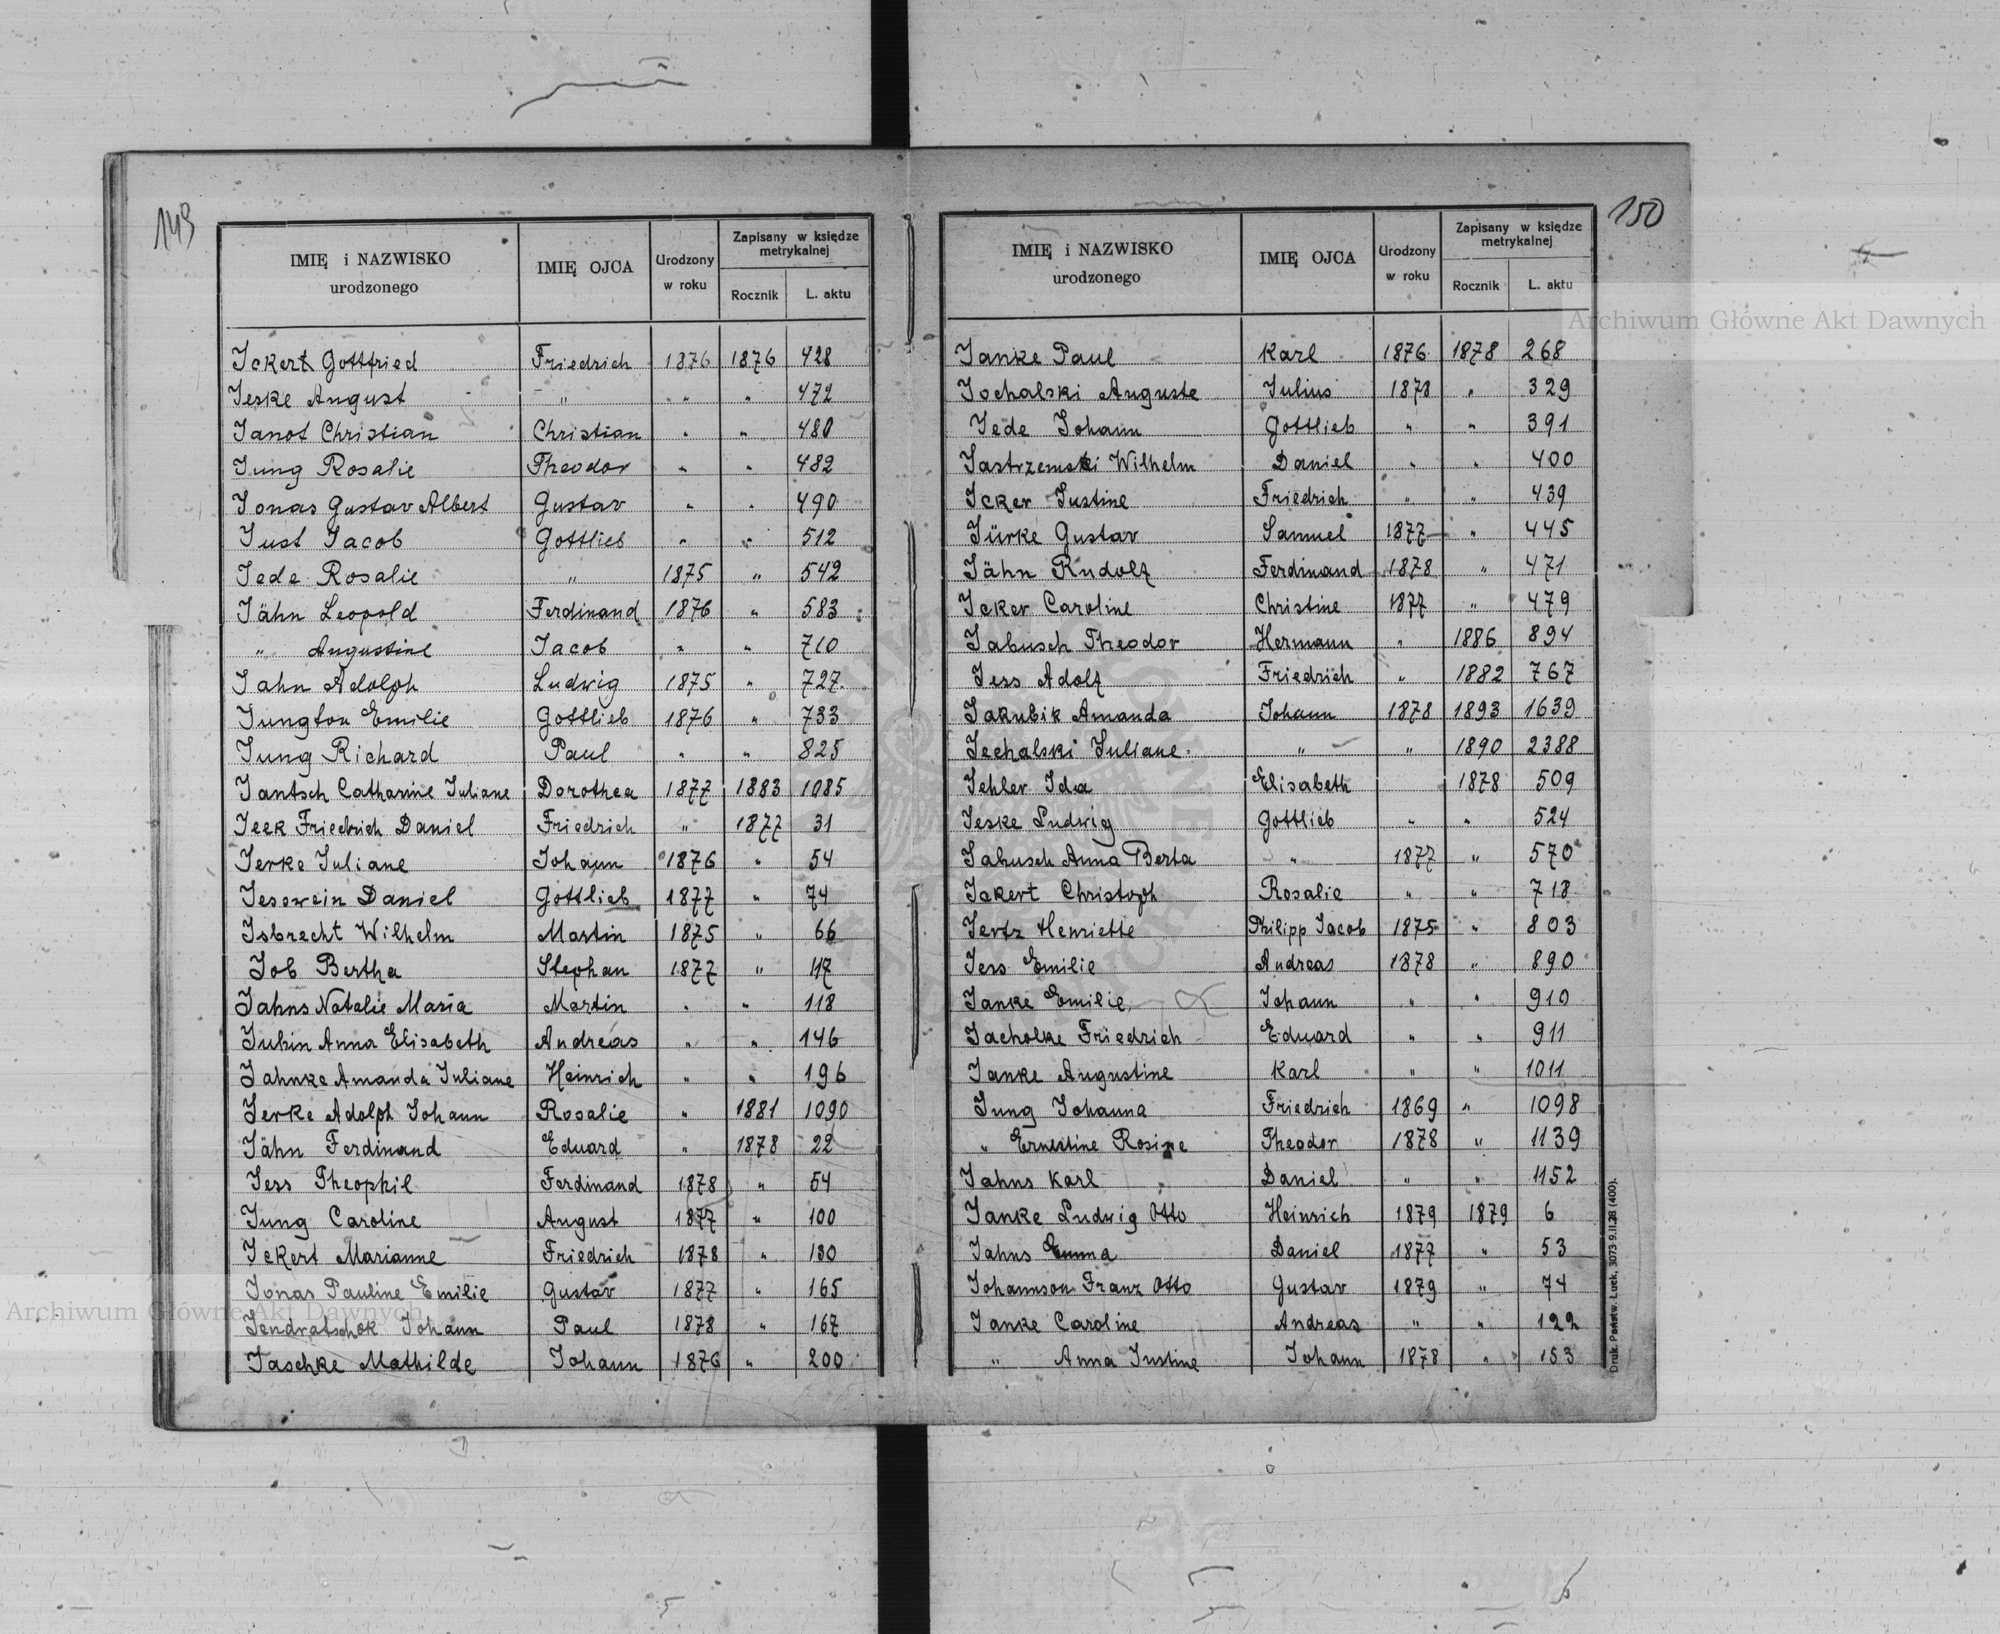 149
IMIĘ i NAZWISKO urodzonego | IMIĘ OJCA | Urodzony w roku | Zapisany w księdze metrykalnej
Rocznik | L. aktu
Ickert Gottfried | Friedrich | 1876 | 1876 | 428
Jeske August | " | " | " | 472
Janot Christian | Christian | " | " | 480
Jung Rosalie | Theodor | " | " | 482
Jonas Gustav Albert | Gustav | " | " | 490
Just Jacob | Gottlieb | " | " | 512
Jede Rosalie | " | 1875 | " | 542
Jähn Leopold | Ferdinand | 1876 | " | 583
" Augustine | Jacob | " | " | 710
Jahn Adolph | Ludwig | 1875 | " | 727
Jungton Emilie | Gottlieb | 1876 | " | 733
Jung Richard | Paul | " | " | 825
Jantsch Catharine Juliane | Dorothea | 1877 | 1883 | 1085
Jeek Friedrich Daniel | Friedrich | " | 1877 | 31
Jerke Juliane | Johann | 1876 | " | 54
Jesowein Daniel | Gottlieb | 1877 | " | 74
Isbrecht Wilhelm | Martin | 1875 | " | 66
Job Bertha | Stephan | 1877 | " | 117
Jahns Natalie Maria | Martin | " | " | 118
Jubin Anna Elisabeth | Andreas | " | " | 146
Jahnke Amanda Juliane | Heinrich | " | " | 196
Jerke Adolph Johann | Rosalie | " | 1881 | 1090
Jähn Ferdinand | Eduard | " | 1878 | 22
Jess Theophil | Ferdinand | 1878 | " | 54
Jung Caroline | August | 1877 | " | 100
Ickert Marianne | Friedrich | 1878 | " | 130
Jonas Pauline Emilie | Gustav | 1877 | " | 165
Jendratschok Johann | Paul | 1878 | " | 167
Jaschke Mathilde | Johann | 1876 | " | 200
150
IMIĘ i NAZWISKO urodzonego | IMIĘ OJCA | Urodzony w roku | Zapisany w księdze metrykalnej
Rocznik | L. aktu
Janke Paul | Karl | 1876 | 1878 | 268
Jochalski Auguste | Julius | 1878 | " | 329
Jede Johann | Gottlieb | " | " | 391
Jastrzemski Wilhelm | Daniel | " | " | 400
Icker Justine | Friedrich | " | " | 439
Jürke Gustav | Samuel | 1877 | " | 445
Jähn Rudolf | Ferdinand | 1878 | " | 471
Icker Caroline | Christine | 1877 | " | 479
Jabusch Theodor | Hermann | " | 1886 | 894
Jess Adolf | Friedrich | " | 1882 | 767
Jakubik Amanda | Johann | 1878 | 1893 | 1639
Jechalski Juliane | " | " | 1890 | 2388
Jehler Ida | Elisabeth | 1878 | 509
Jeske Ludwig | Gottlieb | " | " | 524
Jabusch Anna Berta | " | 1877 | " | 570
Jckert Christoph | Rosalie | " | " | 718
Jertz Henriette | Philipp Jacob | 1875 | " | 803
Jess Emilie | Andreas | 1878 | " | 890
Janke Emilie | Johann | " | " | 910
Jacholke Friedrich | Eduard | " | " | 911
Janke Augustine | Karl | " | " | 1011
Jung Johanna | Friedrich | 1869 | " | 1098
" Ernestine Rosine | Theodor | 1878 | " | 1139
Jahns Karl | Daniel | " | " | 1152
Janke Ludwig Otto | Heinrich | 1879 | 1879 | 6
Jahns Emma | Daniel | 1877 | " | 53
Johannson Franz Otto | Gustav | 1879 | " | 74
Janke Caroline | Andreas | " | " | 122
" Anna Justine | Johann | 1878 | " | 153
Druk. Państw. Łuck, 3073 9.II.28 (400).
Archiwum Główne Akt Dawnych
Archiwum Główne Akt Dawnych